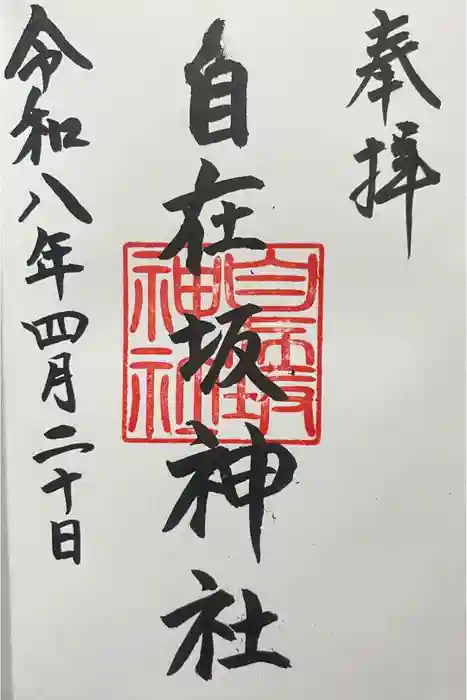 奉拝
自在坂神社
令和八年四月二十日